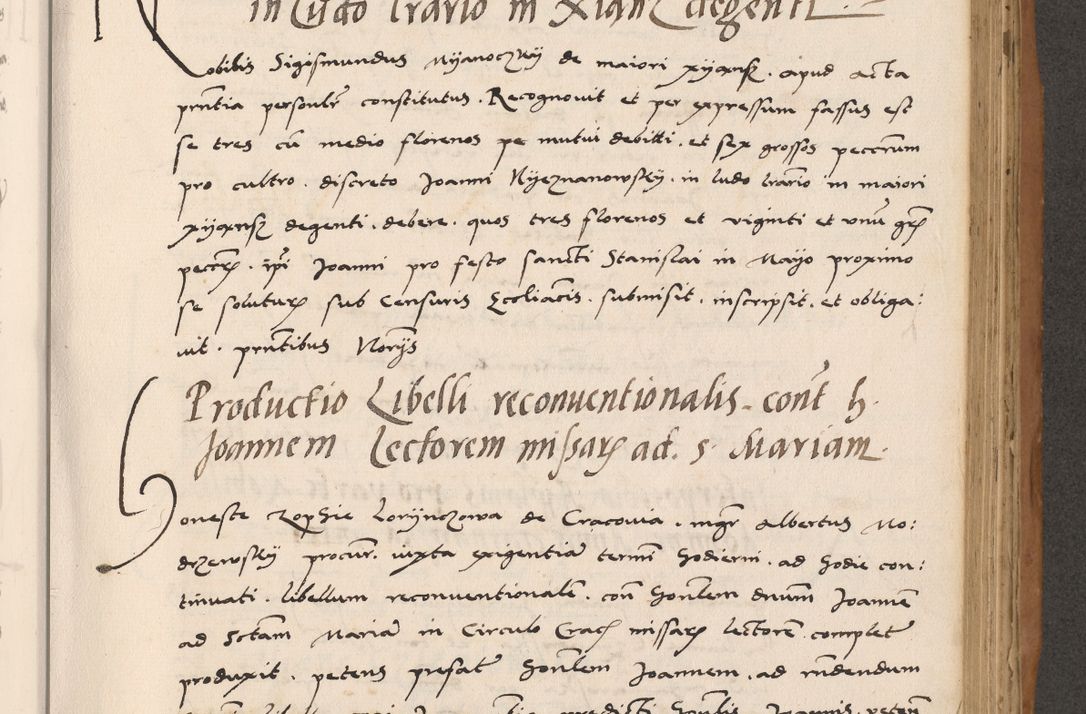 in Ludo Trario in Xianz degenti
obilis Sigismundus Nyanoczky de maiori xyansz . apud acta
prntia personlr constitutus . Recognovit et per expressum fassus est
se tres cu medio florenos pe mutui debitti . et sex grossos peccrum
pro cultro . discreto Joanni Nyeznanowsky . in ludo lrario in maiori
xyansz degenti . debere . quos tres florenos et viginti et unu grs
peccr . ipi Joanni pro festo sancti Stanislai in Mayo proximo
se soluturx sub Censuris Eccliacis . submisit . inscripsit . et obliga:
uit . prntibus Norys
Productio Libelli reconventionalis . cont h .
Joannem Lectorem missarx ad . s . Mariam .
Honeste Zophie Lorynczowa de Cracovia . mgr Albertus Mo:
drzewsky procur . iuxta exigentia termi hodierni . ad hodie con:
tinuati . libellum reconventionale . con honlem dnum Joanne
ad Sctam Maria in Circulo Crac missarx lectore complet
produxit . petens prefat honlem Joannem . ad rndendum